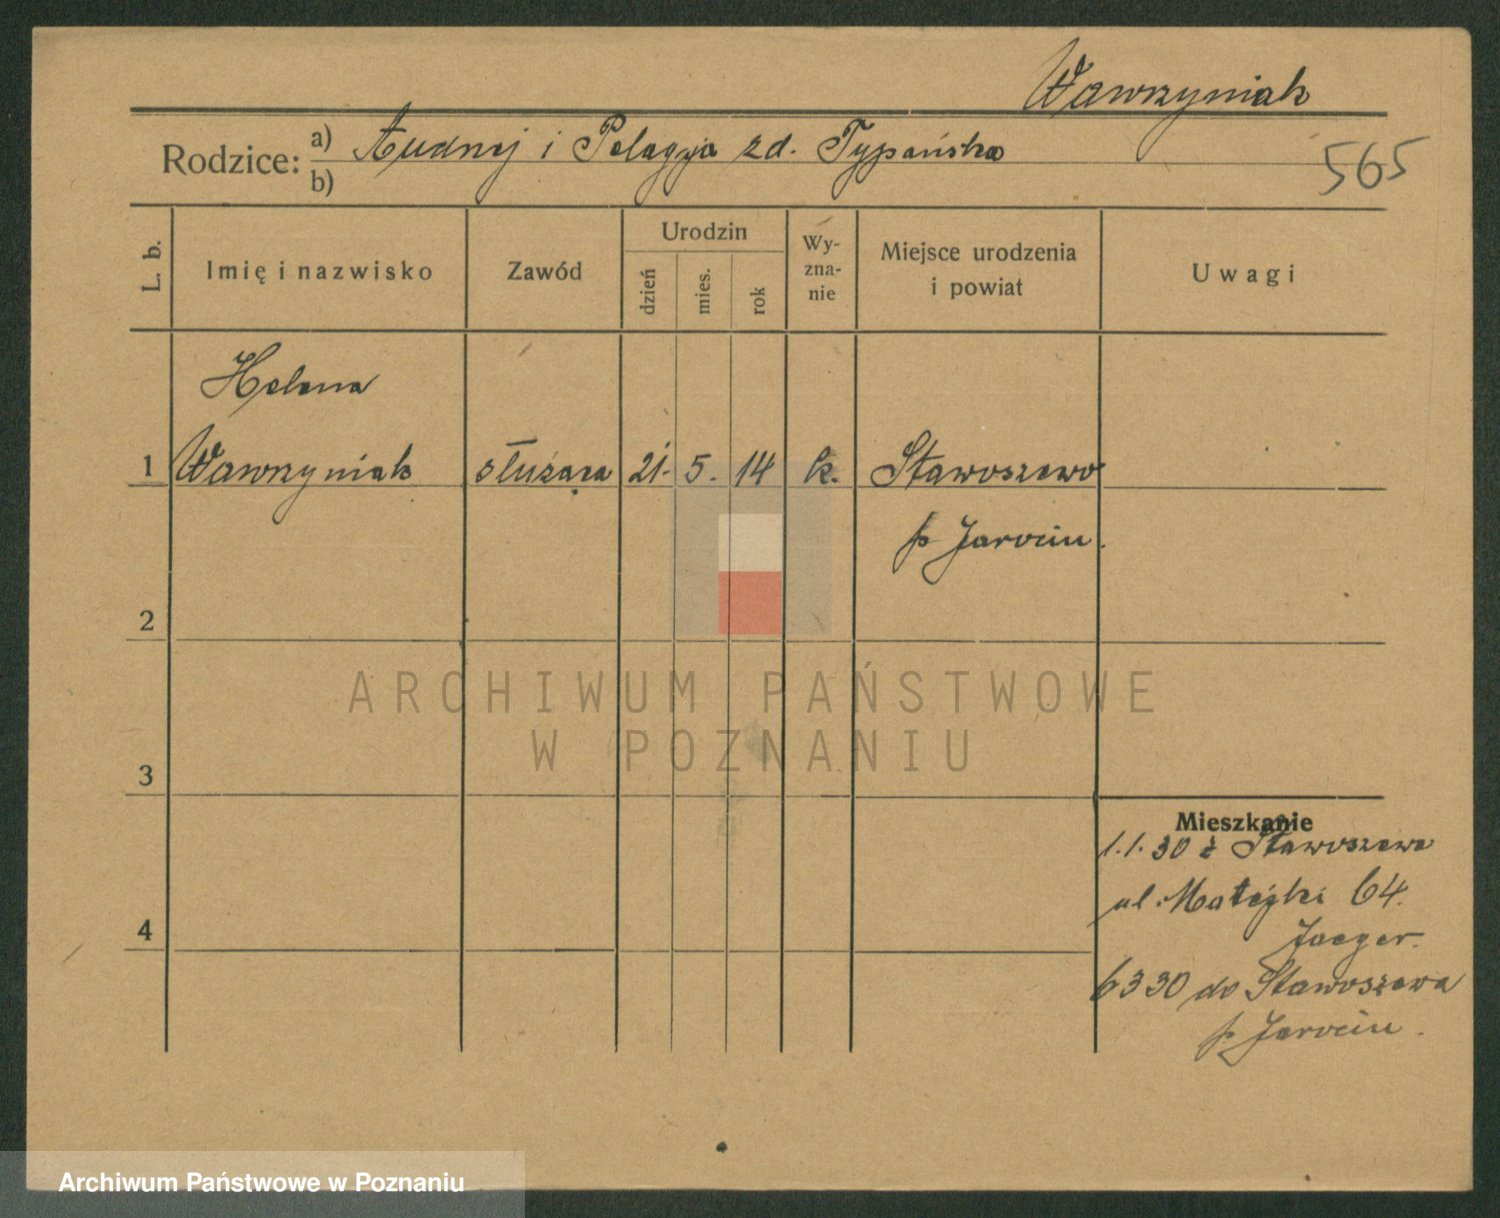 Wawrzyniak
Rodzice: a) Andrzej i Pelagja zd. Typańska
b)
565
L. b.
Imię i nazwisko
Zawód
Urodzin
dzień
mies.
rok
Wy-
zna-
nie
Miejsce urodzenia
i powiat
Uwagi
Helena
1 Wawrzyniak służąca 21. 5. 14 k. Stawoszewo
p Jarocin.
2
3
4
ARCHIWUM PAŃSTWOWE
W POZNANIU
Mieszkanie
1.1.30 z Stawoszewa
ul. Matejki 64.
Jaeger.
6 3 30 do Stawoszewa
p. Jarocin.
Archiwum Państwowe w Poznaniu